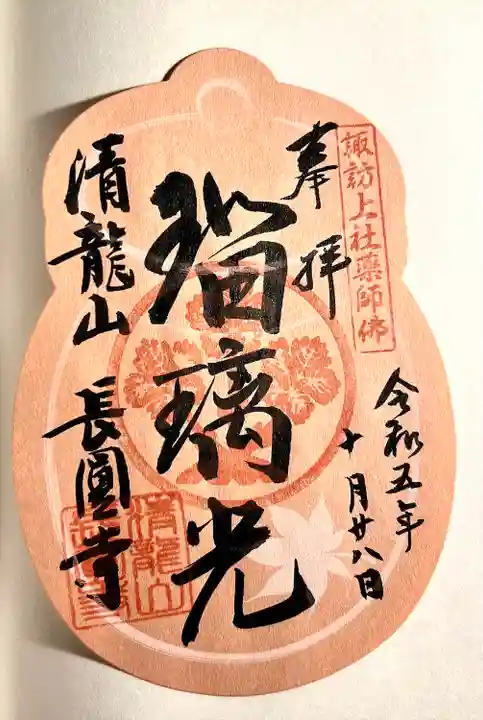 諏訪上社薬師佛
奉拝
令和五年
十月廿八日
瑠璃光
清龍山 長圓寺
清龍山